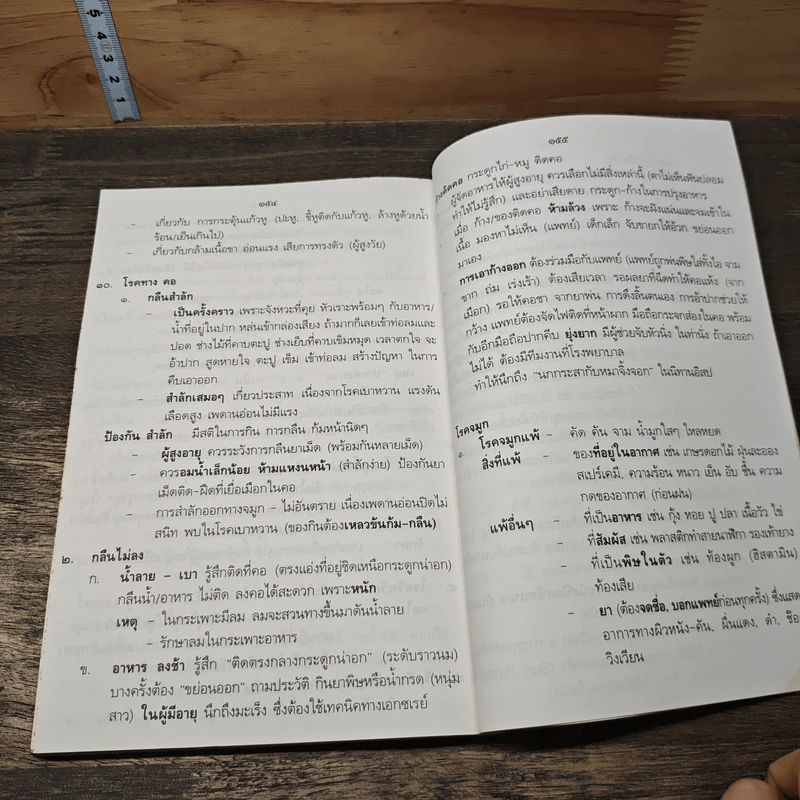 5
4
3
2
1
๑๕๔
- เกี่ยวกับ การกระตุ้นแก้วหู (ปะหู, ขี้หูติดกับแก้วหู, ล้างหูด้วยน้ำ
ร้อน/เย็นเกินไป)
- เกี่ยวกับกล้ามเนื้อขา อ่อนแรง เสียการทรงตัว (ผู้สูงวัย)
๑๐. โรคทาง คอ
๑. กลืนสำลัก
- เป็นครั้งคราว เพราะจังหวะที่คุย หัวเราะพร้อมๆ กับอาหาร/
น้ำที่อยู่ในปาก หล่นเข้ากล่องเสียง ถ้ามากก็เลยเข้าท่อลมและ
ปอด ช่างไม้ที่คาบตะปู ช่างเย็บที่คาบเข็มหมุด เวลาตกใจ จะ
อ้าปาก สูดหายใจ ตะปู เข็ม เข้าท่อลม สร้างปัญหา ในการ
คีบเอาออก
- สำลักเสมอๆ เกี่ยวประสาท เนื่องจากโรคเบาหวาน แรงดัน
เลือดสูง เพดานอ่อนไม่มีแรง
ป้องกัน สำลัก มีสติในการกิน การกลืน ก้มหน้านิดๆ
- ผู้สูงอายุ ควรระวังการกลืนยาเม็ด (พร้อมกันหลายเม็ด)
- ควรอมน้ำเล็กน้อย ห้ามแหงนหน้า (สำลักง่าย) ป้องกันยา
เม็ดติด-ฝืดที่เยื่อเมือกในคอ
- การสำลักออกทางจมูก - ไม่อันตราย เนื่องเพดานอ่อนปิดไม่
สนิท พบในโรคเบาหวาน (ของกินต้องเหลวข้นก้ม-กลืน)
๒. กลืนไม่ลง
ก. น้ำลาย - เบา รู้สึกติดที่คอ (ตรงแอ่งที่อยู่ชิดเหนือกระดูกน่าอก)
กลืนน้ำ/อาหาร ไม่ติด ลงคอได้สะดวก เพราะหนัก
เหตุ - ในกระเพาะมีลม ลมจะสวนทางขึ้นมาดันน้ำลาย
- รักษาลมในกระเพาะอาหาร
ข. อาหาร ลงช้า รู้สึก "ติดตรงกลางกระดูกน่าอก" (ระดับราวนม)
บางครั้งต้อง "ขย่อนออก" ถามประวัติ กินยาพิษหรือน้ำกรด (หนุ่ม
สาว) ในผู้มีอายุ นึกถึงมะเร็ง ซึ่งต้องใช้เทคนิคทางเอกซเรย์
๑๕๕
างติดคอ กระดูกไก่-หมู ติดคอ
ผู้จัดอาหารให้ผู้สูงอายุ ควรเลือกไม่มีสิ่งเหล่านี้ (ตาไม่เห็นฟันปลอม
ทำให้ไม่รู้สึก) และอย่าเสียดาย กระดูก-ก้างในการปรุงอาหาร
เมื่อ ก้าง/ของติดคอ ห้ามล้วง เพราะ ก้างจะฝังแน่นและจมเข้าใน
เนื้อ มองหาไม่เห็น (แพทย์) เด็กเล็ก จับขายกให้อ้วก ขย่อนออก
มาเอง
การเอาก้างออก ต้องร่วมมือกับแพทย์ (แพทย์ถูกพ่นพิษใส่ทั้งไอ จาม
ขาก ถ่ม เร่งเร้า) ต้องเสียเวลา รอผลยาที่ฉีดทำให้คอแห้ง (จาก
เมือก) รอให้คอชา จากยาพ่น การดึงลิ้นตนเอง การอ้าปากช่วยให้
กว้าง แพทย์ต้องจัดไฟติดที่หน้าผาก มือถือกระจกส่องในคอ พร้อม
กับอีกมือถือปากคีบ ยุ่งยาก มีผู้ช่วยจับหัวนิ่ง ในท่านั่ง ถ้าเอาออก
ไม่ได้ ต้องมีทีมงานที่โรงพยาบาล
ทำให้นึกถึง "นกกระสากับหมาจิ้งจอก" ในนิทานอิสป
โรคจมูก
๑. โรคจมูกแพ้ - คัด คัน จาม น้ำมูกใสๆ ไหลหยด
สิ่งที่แพ้ - ของที่อยู่ในอากาศ เช่น เกษรดอกไม้ ฝุ่นละออง
สเปร์เคมี, ความร้อน หนาว เย็น อับ ชื้น ความ
กดของอากาศ (ก่อนฝน)
แพ้อื่นๆ - ที่เป็นอาหาร เช่น กุ้ง หอย ปู ปลา เนื้อวัว ไข่
- ที่สัมผัส เช่น พลาสติกทำสายนาฬิกา รองเท้ายาง
- ที่เป็นพิษในตัว เช่น ท้องผูก (ฮิสตามิน)
ท้องเสีย
- ยา (ต้องจดชื่อ, บอกแพทย์ก่อนทุกครั้ง) ซึ่งแสด
อาการทางผิวหนัง-คัน, ผื่นแดง, ดำ, ช็อ
วิงเวียน